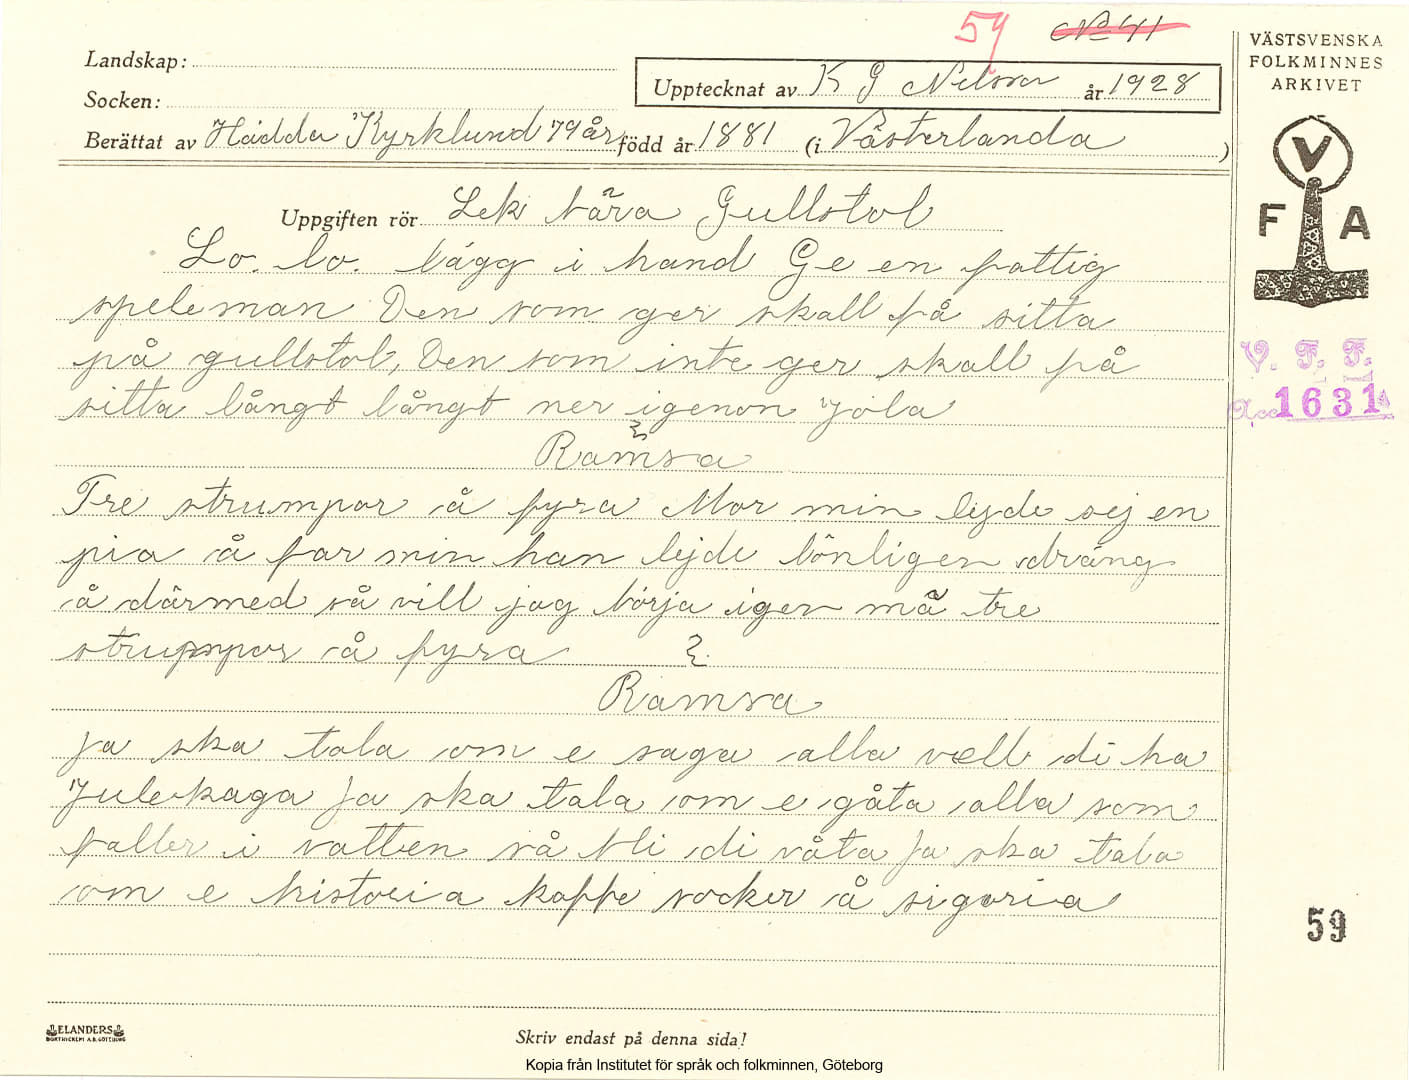 59 No 41
Landskap:
Upptecknat av K G Nilsson år 1928
Socken:
Berättat av Hädda Kyrklund 79 år född år 1881 (i Västerlanda)
Uppgiften rör Lek bära Gullstol
Lo. lo. lägg i hand Ge en fattig
speleman Den som ger skall få sitta
på gullstol, Den som inte ger skall få
sitta långt långt ner igenon jola
Ramsa
Tre strumpor å fyra Mor min lejde sej en
pia å far min han lejde lönligen dräng
å därmed så vill jag börja igen mä tre
strumpor å fyra
Ramsa
Ja ska tala om e saga alla vell di ha
Julekaga Ja ska tala om e gåta alla som
faller i vatten så bli di våta Ja ska tala
om e historia kaffe socker å sigoria
ELANDERS
BOKTRYCKERI A.B. GÖTEBORG
Skriv endast på denna sida!
Kopia från Institutet för språk och folkminnen, Göteborg
VÄSTSVENSKA
FOLKMINNES
ARKIVET
V
F A
V. F. F.
Acc 1631
59